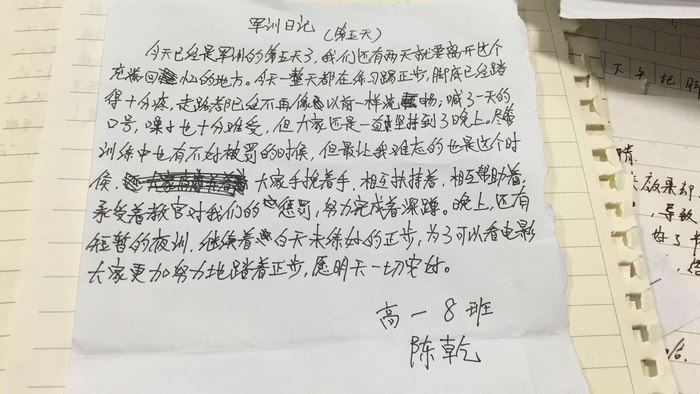 军训日记
(第五天)
今天已经是军训的第五天了,我们还有两天就要离开这个
充满回忆的地方。今天一整天都在练习踢正步,脚底已经踏
得十分疼,走路都已经不再像以前一样流畅;喊了一天的
口号,嗓子也十分难受,但大家还是一直坚持到了晚上。尽管
训练中也有不好被罚的时候,但最让我难忘的也是这个时
候,大家手挽着手,相互扶持着,相互帮助着,
承受着教官对我们的惩罚,努力完成着深蹲。晚上,还有
短暂的夜训,继续着白天未练好的正步,为了可以看电影
大家更加努力地踏着正步,愿明天一切安好。
高一8班
陈乾
下午把脚
情
导致